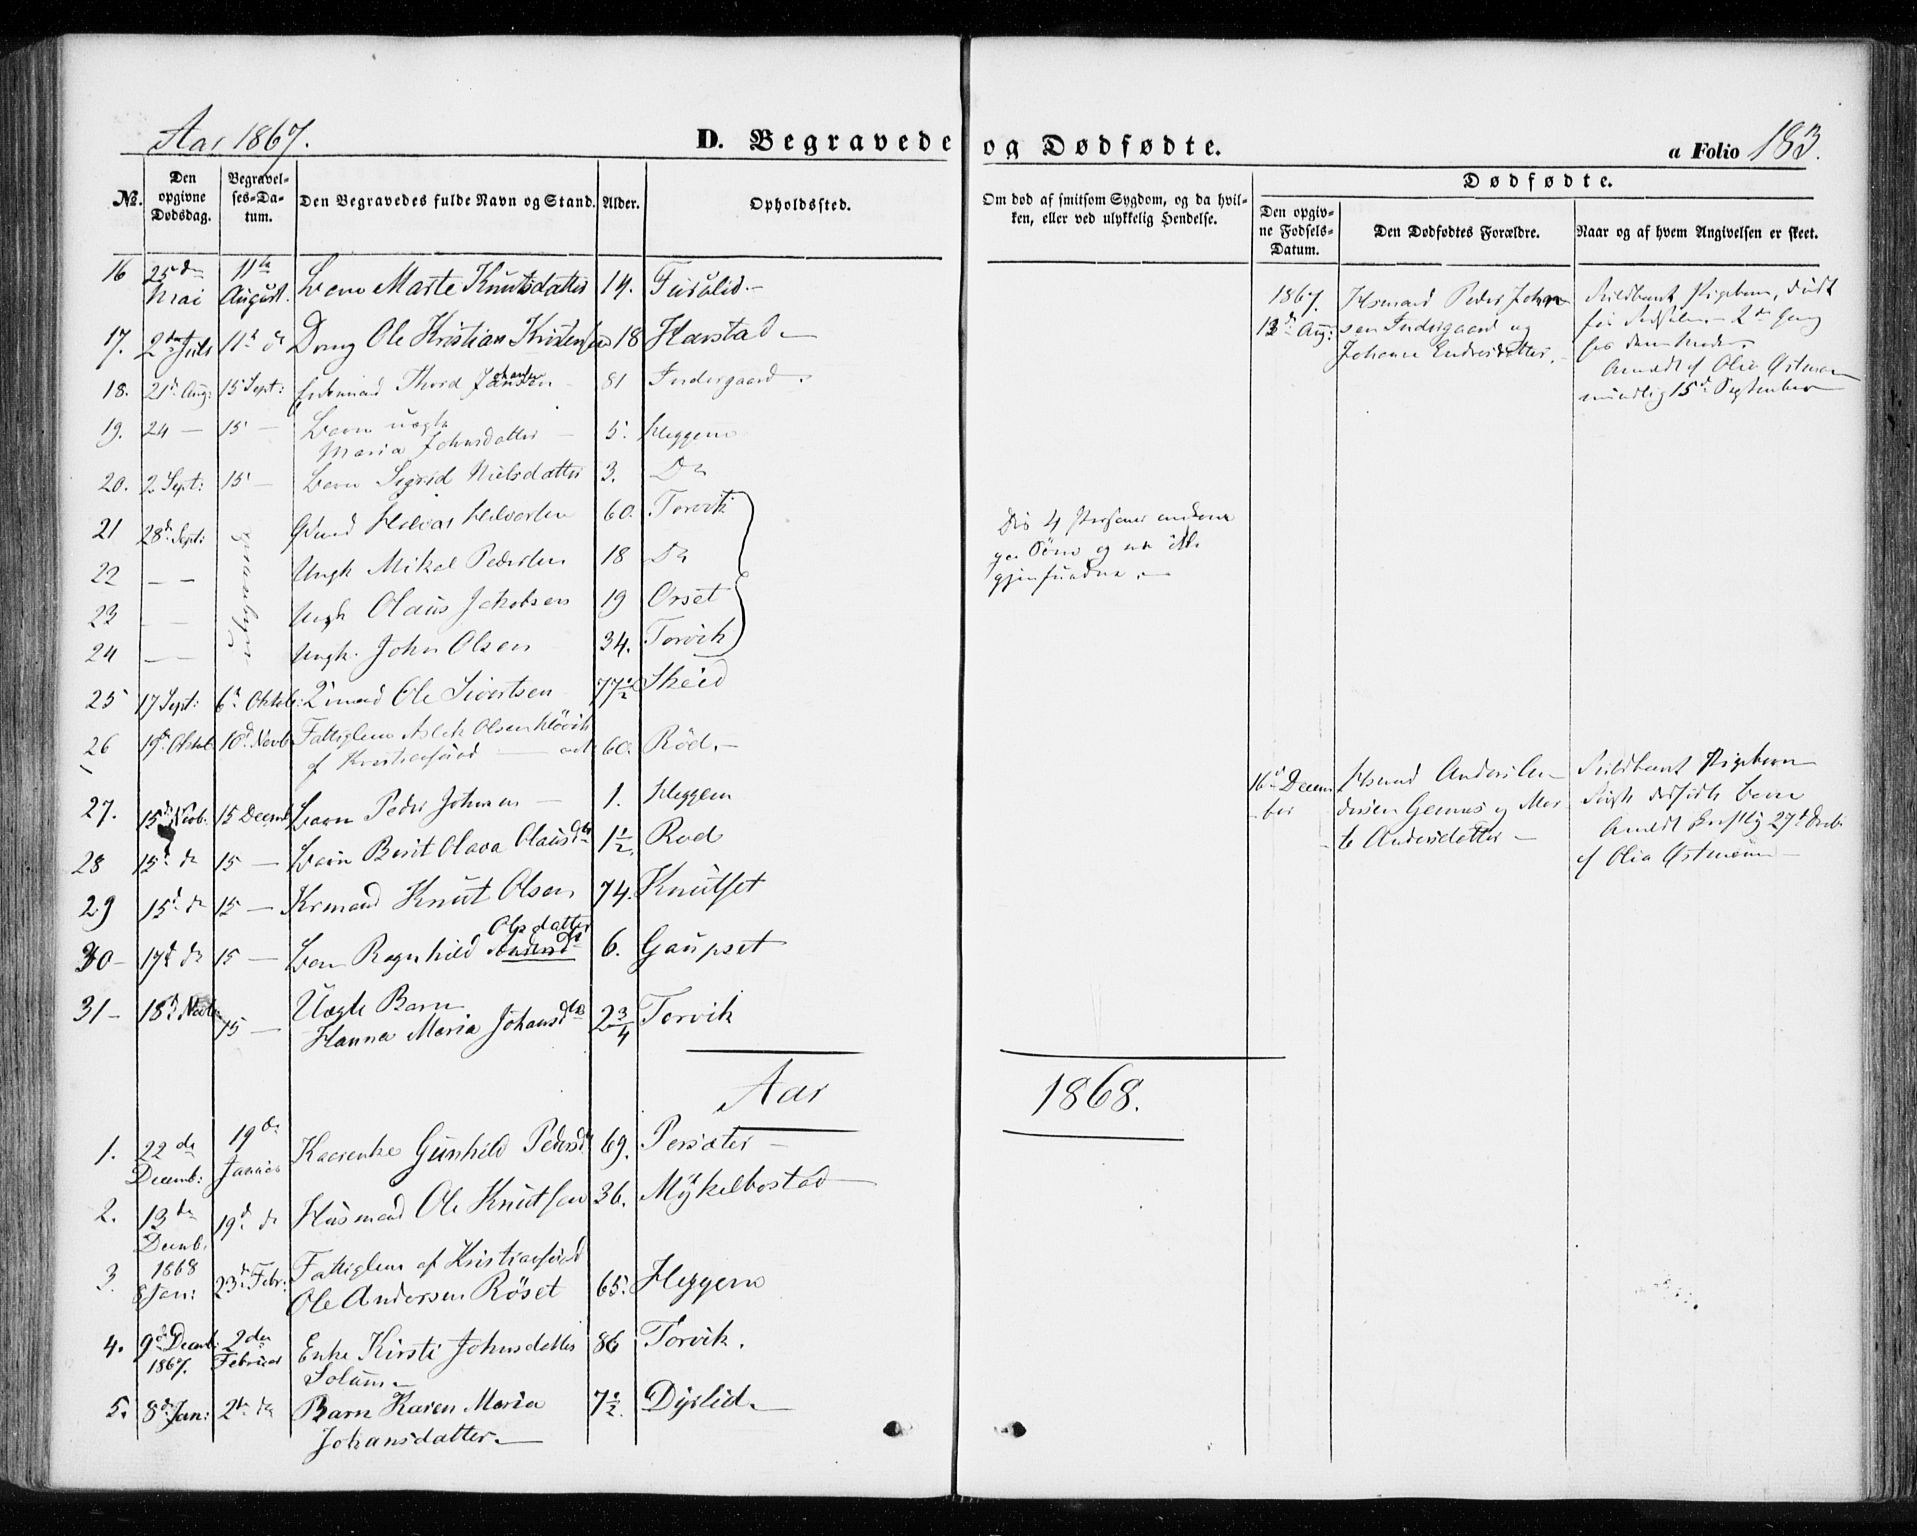 Aar 1867.
D. Begravede og Dødfødte.
a Folio 183.
No.
Den opgivne Dødsdag.
Begravelses-Datum.
Den Begravedes fulde Navn og Stand.
Alder.
Opholdssted.
Om død af smitsom Sygdom, og da hvilken, eller ved ulykkelig Hendelse.
Dødfødte.
Den opgivne Fødsels-Datum.
Den Dødfødtes Forældre.
Naar og af hvem Angivelsen er skeet.
16 25de Mai 11te August. Barn Marte Knutsdatter 14.
17. 2den Juli 11te do Dreng Ole Kristian Kristensen 18 Harstad
18. 21de Aug: 15 Sept: Thord Johansen 81 Indergaard
19. 24 — 15 — Barn uægte Maria Johnsdatter 5. Heggem
20. 2 Sept: 15 — Barn Sigrid Nielsdatter 3. Do
21 28de Sept: Halvor Halvorsen 60. Torvik
22 — — Ungk Mikal Pedersen 18 Do
23 — Ungk Olaus Jakobsen 19 Orset
24 — Ungk. John Olsen 34. Torvik
Dis 4 Personer omkom
paa Søen og er ikke
gjenfundne.
25 17 Sept: 6te Oktob: Ole Sivertsen 77½ Skeid
26 19de Oktob 10de Novb Fattiglem Aslak Olsen
af Kristiansund 60. Rød.
27. 15de Novb. 15 Decemb Barn Peder Johnsen 1. Heggem
28 15de do 15 — Barn Berit Olava Olausdtr 1½ Rød
29 15de do 15 — Knut Olsen 74. Knutset
30 — 17de do 15 — Barn Ragnhild Olsdatter 6. Gaupset
31 — 18de Novb 15 — Uægte Barn
Hanna Maria Johansdtr 2¾ Torvik
1867.
13de Aug:
Husmand Peder Johnsen
Indergaard og
Johanne Endresdatter.
Fuldbaaret Pigebarn, født
før
Anmeldt af Olia Østmoen
mundlig 15de September
16de December
Husmand Anders
og Marte Andersdatter —
Fuldbaaret Pigebarn
Barn
Anmeldt skriftlig 27de Decb
af Olia Østmoen
Aar 1868.
1. 22de Decemb: 19de Januar Kaarenke Gunhild Pedersdtr 69. Persæter
2. 13de Decemb. 19de do Husmand Ole Knutsen 36. Mykelbostad
3. 1868 8 Jan: 23de Febr: Fattiglem af Kristiansund
Ole Andersen Røset 65. Heggem
4. 9de Decemb: 1867. 2den Februar Enke Kirsti Johnsdatter
Solum 86 Torvik.
5. 8de Jan: 2de do Barn Karen Maria
Johansdatter 7½ Dyrlid.